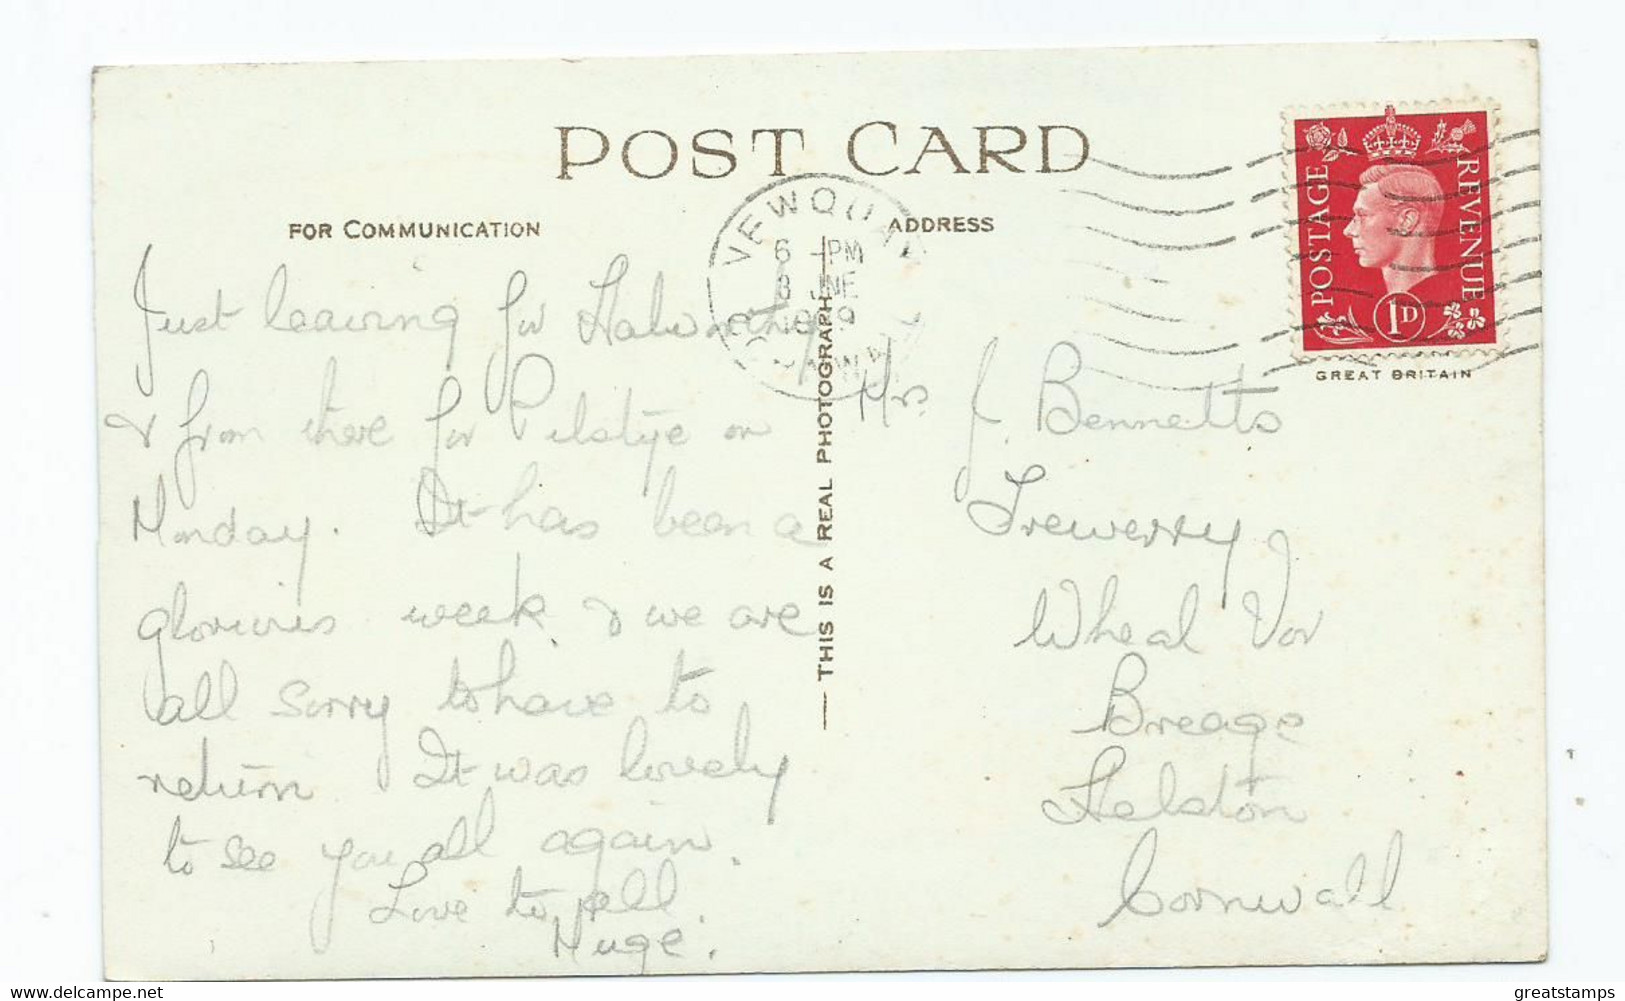 POST CARD
FOR COMMUNICATION
ADDRESS
NEWQUAY
6 - PM
8 JNE
1939
CORNWALL
POSTAGE
REVENUE
1D
GREAT BRITAIN
THIS IS A REAL PHOTOGRAPH
Just leaving for Holsworthy
& from there for on
Monday. It has been a
glorious week & we are
all sorry to have to
return It was lovely
to see you all again.
Love to all.
Mrs. J. Bennetts
Trewerry
Wheal Vor
Breage
Helston
Cornwall
www.delcampe.net
greatstamps